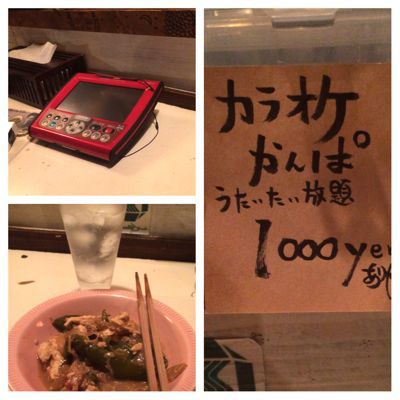 カラオケ
かんぱ
うたいたい放題
1000yen